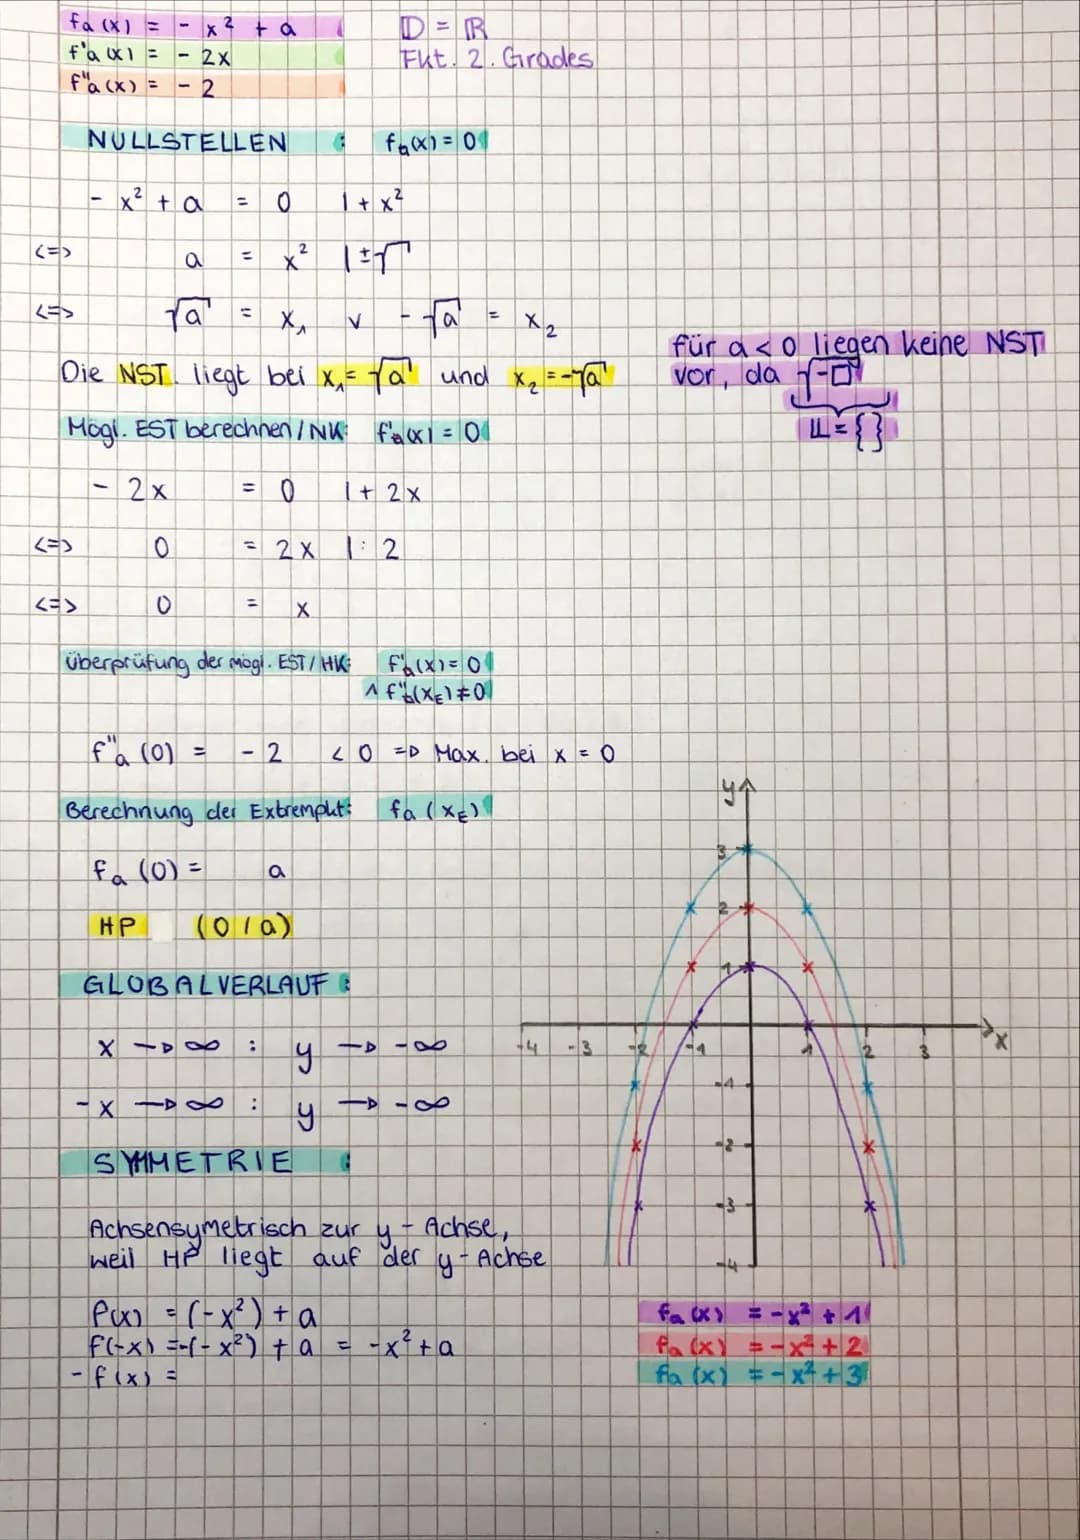 fa (x) = - x² + a
f'a (x) = - 2x
f"a (x) = - 2
𝔻 = ℝ
Fkt. 2. Grades
NULLSTELLEN : fa(x) = 0
- x² + a = 0 | + x²
<=> a = x² | ±√
<=> √a = x₁ v - √a = x₂
Die NST. liegt bei x₁ = √a und x₂ = -√a
für a < 0 liegen keine NST
vor, da √-□
𝕃 = { }
Mögl. EST berechnen / NK: f'a(x) = 0
- 2x = 0 | + 2x
<=> 0 = 2x | : 2
<=> 0 = x
überprüfung der mögl. EST / HK: f'a(x) = 0
∧ f"a(xE) ≠ 0
f"a (0) = - 2 < 0 => Max. bei x = 0
Berechnung der Extrempkt: fa (xE)
fa (0) = a
HP (0 / a)
GLOBALVERLAUF :
x → ∞ : y → -∞
-x → ∞ : y → -∞
SYMMETRIE :
Achsensymetrisch zur y - Achse,
weil HP liegt auf der y - Achse
f(x) = (-x²) + a
f(-x) = -(-x²) + a = -x² + a
- f(x) =
y
3
2
1
-4 -3 -2 -1 1 2 3 x
-1
-2
-3
-4
fa (x) = -x² + 1
fa (x) = -x² + 2
fa (x) = -x² + 3